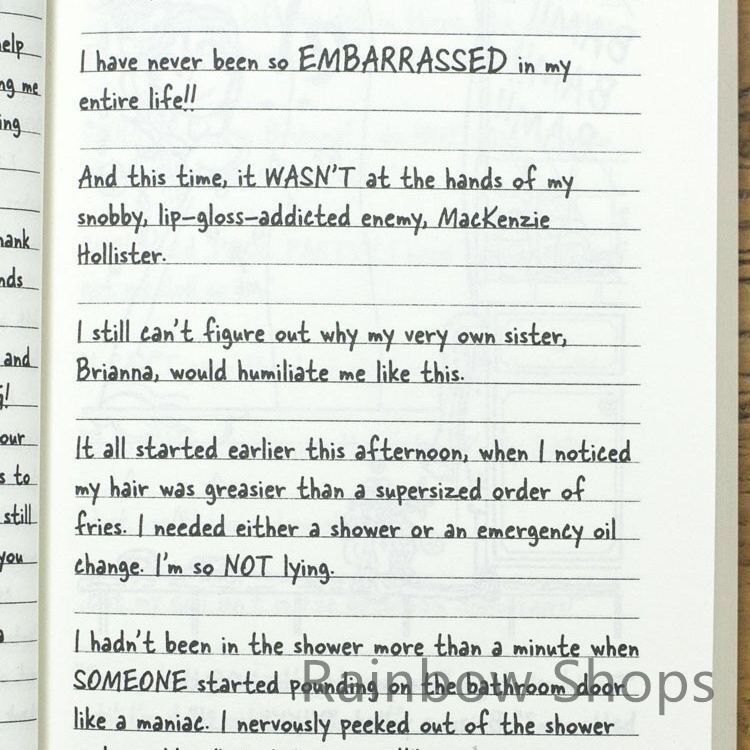 elp
ng me
ing
hank
nds
and
our
s to
still
you
I have never been so EMBARRASSED in my
entire life!!
And this time, it WASN'T at the hands of my
snobby, lip-gloss-addicted enemy, MacKenzie
Hollister.
I still can't figure out why my very own sister,
Brianna, would humiliate me like this.
It all started earlier this afternoon, when I noticed
my hair was greasier than a supersized order of
fries. I needed either a shower or an emergency oil
change. I'm so NOT lying.
I hadn't been in the shower more than a minute when
SOMEONE started pounding on the bathroom door
like a maniac. I nervously peeked out of the shower
Rainbow Shops